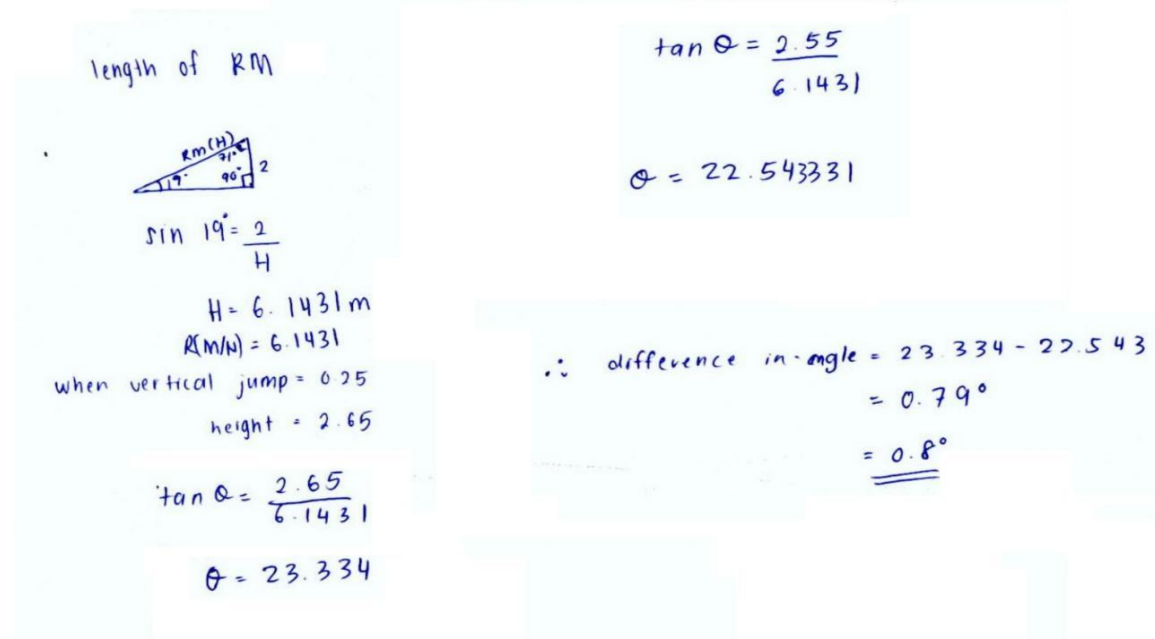 length of RM
RM(H)
71°
19°
90°
2
sin 19° = 2
H
H = 6.1431m
R(M/N) = 6.1431
when vertical jump = 0.25
height = 2.65
tan θ = 2.65
6.1431
θ = 23.334
tan θ = 2.55
6.1431
θ = 22.543331
∴ difference in angle = 23.334 - 22.543
= 0.79°
= 0.8°